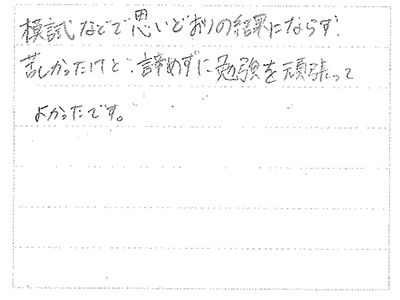 模試などで思いどおりの結果にならず、
苦しかったけど、諦めずに勉強を頑張って
よかったです。